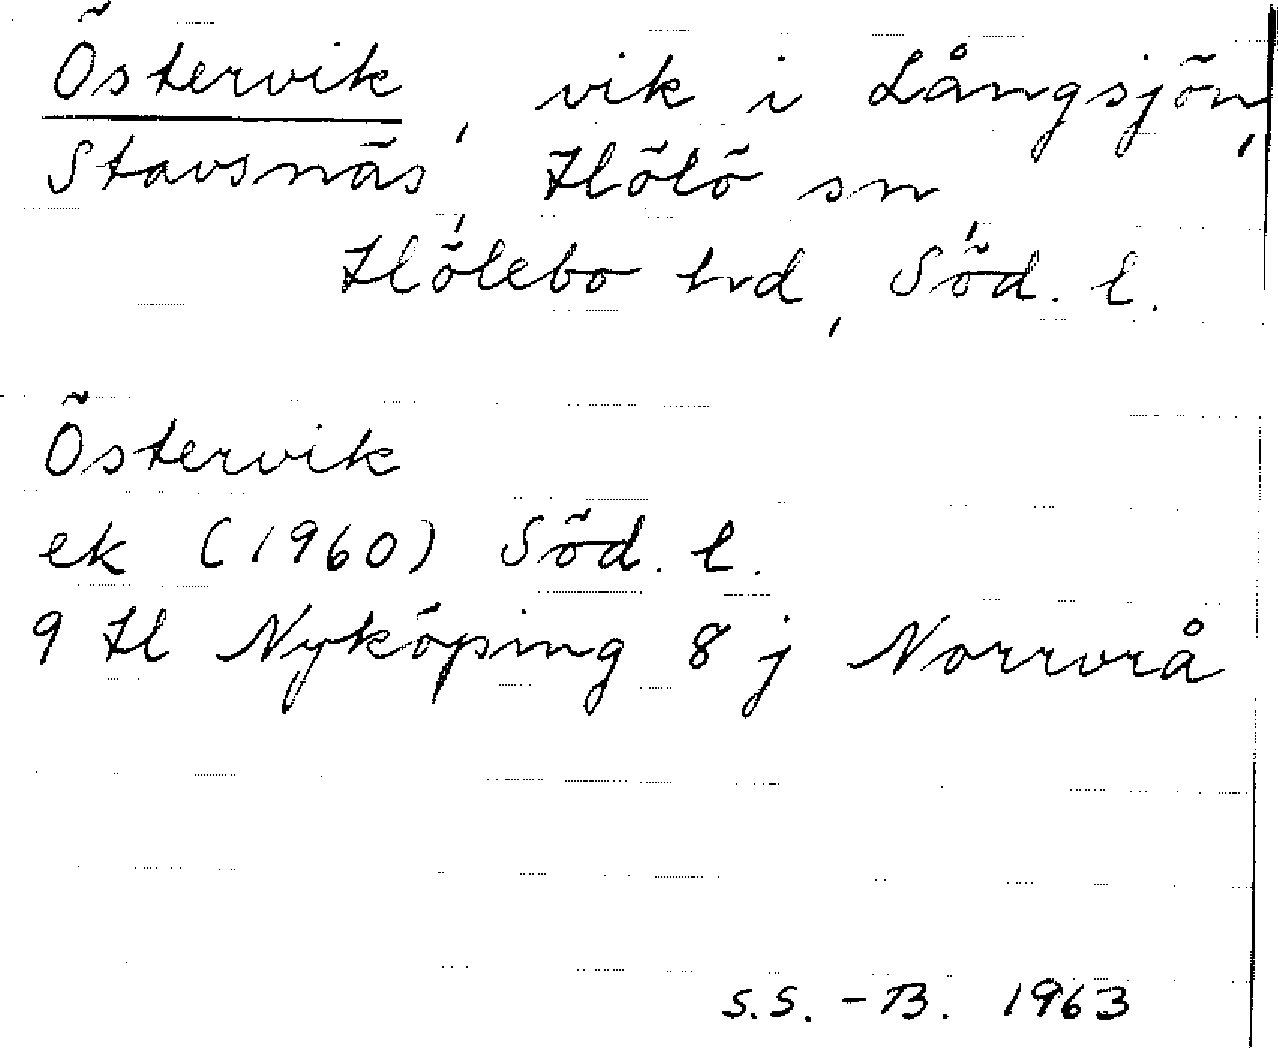 Östervik, vik i Långsjön,
Stavsnäs, Hölö sn,
Hölebo hd, Söd. l.
Östervik
ek (1960) Söd. l.
9 H Nyköping 8 j Norrvrå
S.S. -B. 1963